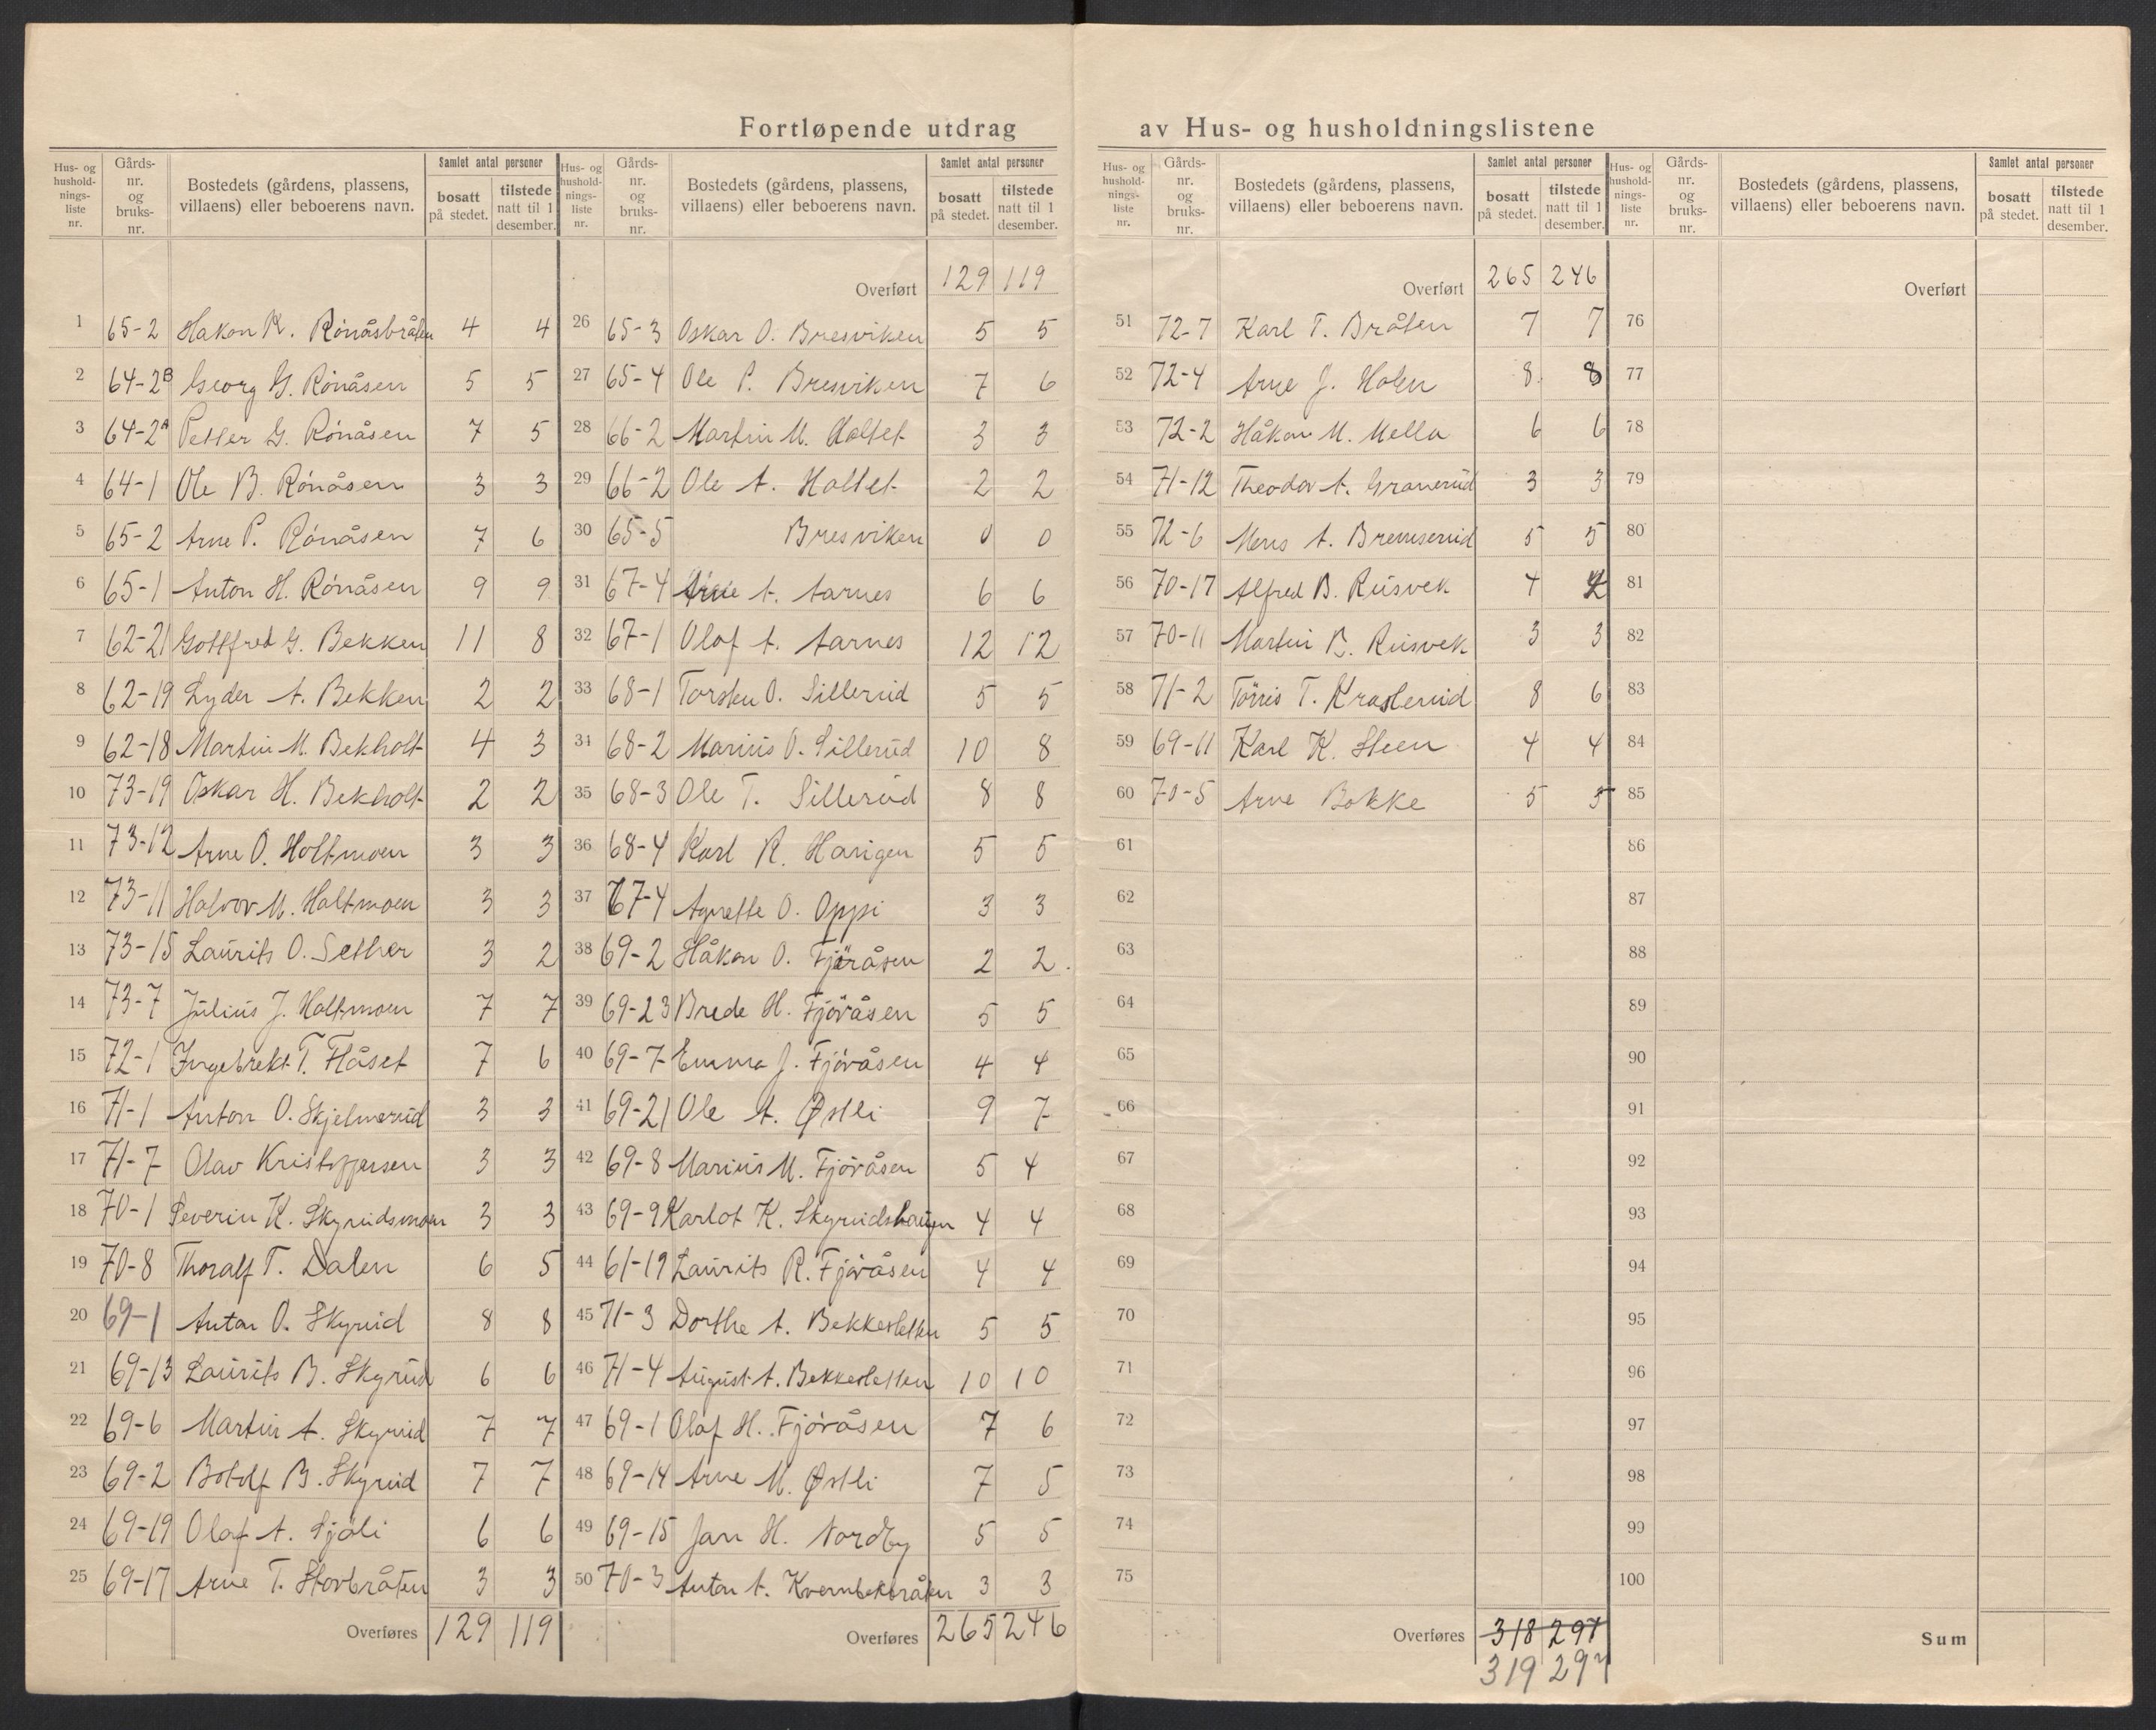 Fortløpende utdrag av Hus- og husholdningslistene
Hus- og husholdnings-liste nr. Gårds-nr. og bruks-nr. Bostedets (gårdens, plassens, villaens) eller beboerens navn. Samlet antal personer bosatt på stedet. tilstede natt til 1 desember.
1 65-2 Hakon K. Rönåsbråten 4 4
2 64-2B Georg G. Rönåsen 5 5
3 64-2A Petter G. Rönåsen 7 5
4 64-1 Ole B. Rönåsen 3 3
5 65-2 Arne P. Rönåsen 7 6
6 65-1 Anton H. Rönåsen 9 9
7 62-21 Gottfred G. Bekken 11 8
8 62-19 Lyder A. Bekken 2 2
9 62-18 Martin M. Bekholt 4 3
10 73-19 Oskar H. Bekholt 2 2
11 73-12 Arne O. Holtmoen 3 3
12 73-11 Halvor M. Holtmoen 3 3
13 73-15 Laurits O. Sether 3 2
14 73-7 Julius J. Holtmoen 7 7
15 72-1 Ingebrekt T. Flåset 7 6
16 71-1 Anton O. Skjelmerud 3 3
17 71-7 Olav Kristoffersen 3 3
18 70-1 Severin K. Skyrudsmoen 3 3
19 70-8 Thoralf T. Dalen 6 5
20 69-1 Anton O. Skyrud 8 8
21 69-13 Laurits B. Skyrud 6 6
22 69-6 Martin A. Skyrud 7 7
23 69-2 Botolf B. Skyrud 7 7
24 69-19 Olaf A. Sjöli 6 6
25 69-17 Arne T. Storbråten 3 3
Overføres 129 119
Hus- og husholdnings-liste nr. Gårds-nr. og bruks-nr. Bostedets (gårdens, plassens, villaens) eller beboerens navn. Samlet antal personer bosatt på stedet. tilstede natt til 1 desember.
Overført 129 119
26 65-3 Oskar O. Bresviken 5 5
27 65-4 Ole P. Bresviken 7 6
28 66-2 Martin M. Holtet 3 3
29 66-2 Ole A. Holtet 2 2
30 65-5 Bresviken 0 0
31 67-4 Arne A. Aarnes 6 6
32 67-1 Olaf A. Aarnes 12 12
33 68-1 Torsten O. Sillerud 5 5
34 68-2 Marius O. Sillerud 10 8
35 68-3 Ole T. Sillerud 8 8
36 68-4 Karl R. Harigen 5 5
37 67-4 Agnette O. Oppi 3 3
38 69-2 Håkon O. Fjöråsen 2 2
39 69-23 Brede H. Fjöråsen 5 5
40 69-7 Emma J. Fjöråsen 4 4
41 69-21 Ole A. Østli 9 7
42 69-8 Marius M. Fjöråsen 5 4
43 69-9 Karlot K. Skyrudshaugen 4 4
44 61-19 Laurits R. Fjöråsen 4 4
45 71-3 Dorthe A. Bekkesletten 5 5
46 71-4 August A. Bekkesletten 10 10
47 69-1 Olaf H. Fjöråsen 7 6
48 69-14 Arne M. Østli 7 5
49 69-15 Jan H. Nordby 5 5
50 70-3 Anton A. Kvernbekbråten 3 3
Overføres 265 246
Hus- og hushold-nings-liste nr. Gårds-nr. og bruks-nr. Bostedets (gårdens, plassens, villaens) eller beboerens navn. Samlet antal personer bosatt på stedet. tilstede natt til 1 desember.
Overført 265 246
51 72-7 Karl T. Bråten 7 7
52 72-4 Arne J. Holen 8 8
53 72-2 Håkon M. Mella 6 6
54 71-12 Theodor A. Granerud 3 3
55 72-6 Mens A. Bremserud 5 5
56 70-17 Alfred B. Rusvek 4 2
57 70-11 Martin B. Rusvek 3 3
58 71-2 Törris T. Krasterud 8 6
59 69-11 Karl K. Steen 4 4
60 70-5 Arne Bakke 5 5
61
62
63
64
65
66
67
68
69
70
71
72
73
74
75
Overføres 318 297
319 29
Hus- og hushold-nings-liste nr. Gårds-nr. og bruks-nr. Bostedets (gårdens, plassens, villaens) eller beboerens navn. Samlet antal personer bosatt på stedet. tilstede natt til 1 desember.
Overført
76
77
78
79
80
81
82
83
84
85
86
87
88
89
90
91
92
93
94
95
96
97
98
99
100
Sum